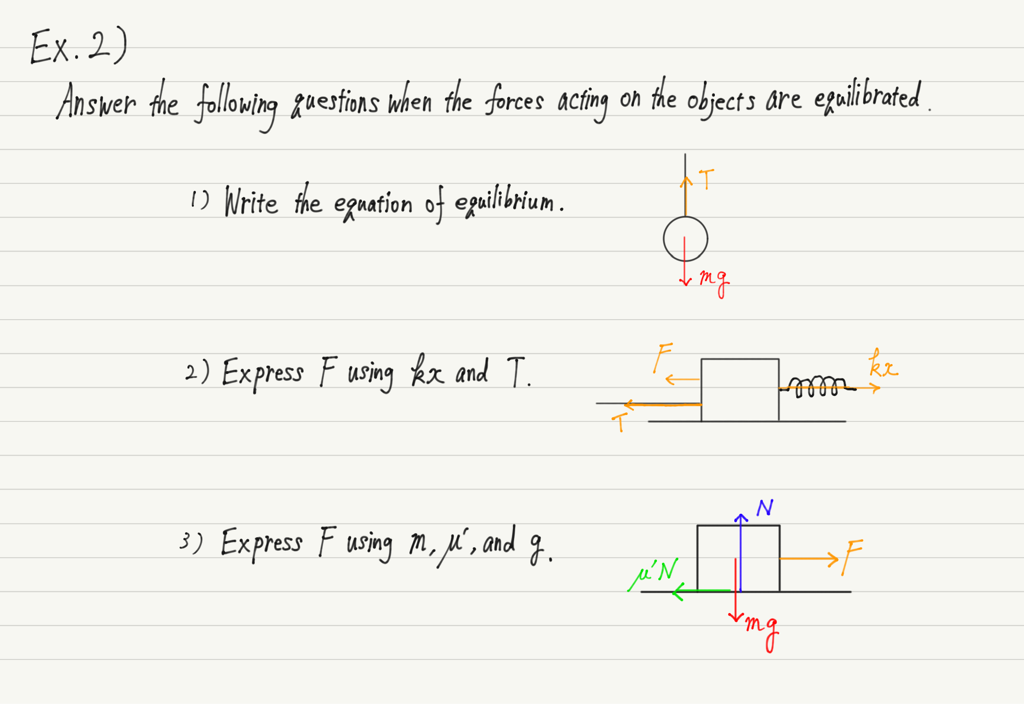 Ex. 2)
Answer the following questions when the forces acting on the objects are equilibrated.
1) Write the equation of equilibrium.
T
mg
2) Express F using kx and T.
F
kx
T
3) Express F using m, μ', and g.
N
F
μ'N
mg